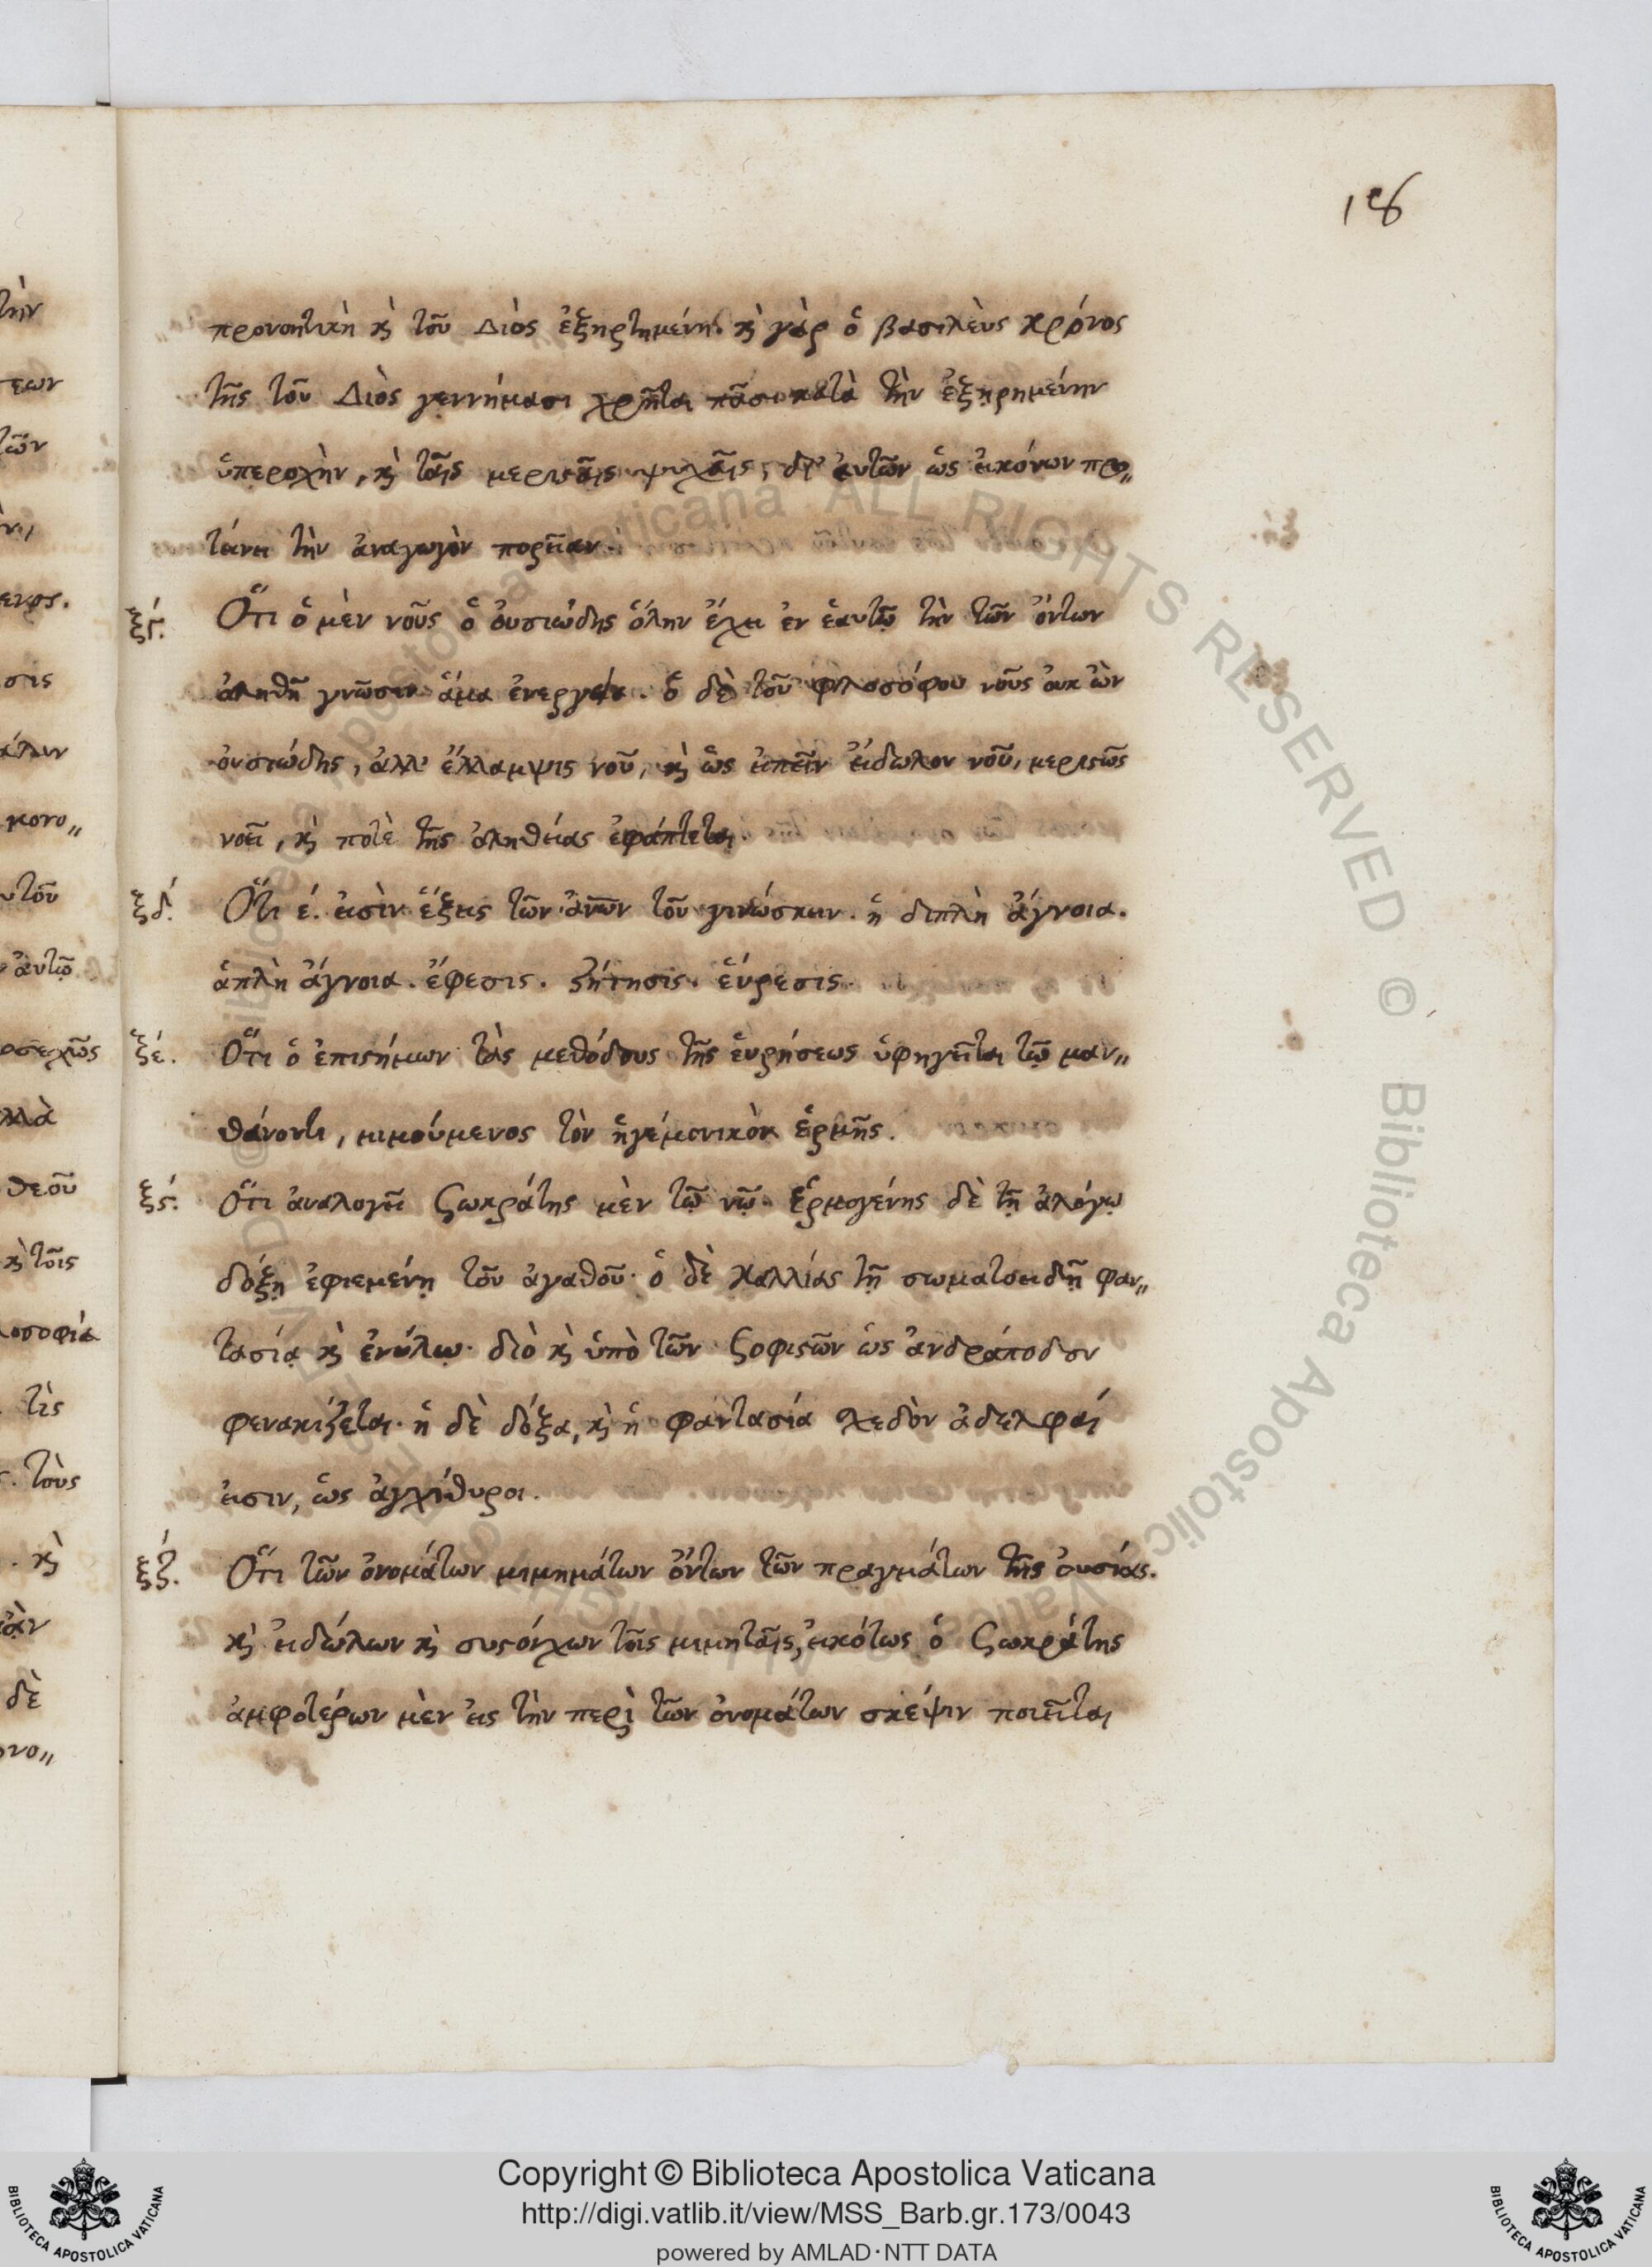 18
προνοητικὴ κὴ τοῦ Διὸς ἐξηρτημένη. κὴ γὰρ ὁ βασιλεὺς κρόνος
τῆς τοῦ Διὸς γεννήμασι χρῆται πᾶσι κατὰ τὴν ἐξῃρημένην
ὑπεροχὴν, κὴ ταῖς μερισταῖς ψυχαῖς, δι' αὐτῶν ὡς εἰκόνων προ〃
τείνει τὴν ἀναγωγὸν πορείαν.
ξγ. Ὅτι ὁ μὲν νοῦς ὁ οὐσιώδης ὅλην ἔχει ἐν ἑαυτῷ τὴν τῶν ὄντων
ἀληθῆ γνῶσιν ἅμα ἐνεργείᾳ. ὁ δὲ τοῦ φιλοσόφου νοῦς οὐκ ὢν
οὐσιώδης, ἀλλ' ἔλλαμψις νοῦ, κὴ ὡς εἰπεῖν εἴδωλον νοῦ, μεριστῶς
νοεῖ, κὴ ποτὲ τῆς ἀληθείας ἐφάπτεται.
ξδ. Ὅτι έ. εἰσὶν ἕξεις τῶν ἀνων τοῦ γινώσκειν. ἡ διπλὴ ἄγνοια.
ἁπλὴ ἄγνοια. ἔφεσις. ζήτησις. εὕρεσις.
ξέ. Ὅτι ὁ ἐπιστήμων τὰς μεθόδους τῆς εὑρήσεως ὑφηγεῖται τῷ μαν〃
θάνοντι, μιμούμενος τὸν ἡγέμονικὸν ἑρμῆς.
ξς. Ὅτι ἀναλογεῖ Σωκράτης μὲν τῷ νῷ. Ἑρμογένης δὲ τῇ ἀλόγῳ
δόξῃ ἐφιεμένῃ τοῦ ἀγαθοῦ. ὁ δὲ καλλίας τῇ σωματοειδῆ φαν〃
τασίᾳ κὴ ἐνύλῳ. διὸ κὴ ὑπὸ τῶν Σοφιστῶν ὡς ἀνδράποδον
φενακίζεται. ἡ δὲ δόξα, κὴ ἡ φαντασία σχεδὸν ἀδελφαί
εἰσιν, ὡς ἀγχίθυροι.
ξζ. Ὅτι τῶν ὀνομάτων μιμημάτων ὄντων τῶν πραγμάτων τῆς οὐσίας.
κὴ εἰδώλων κὴ συστόιχων τοῖς μιμηταῖς, εἰκότως ὁ Σωκράτης
ἀμφοτέρων μὲν εἰς τὴν περὶ τῶν ὀνομάτων σκέψιν ποιεῖται
Copyright © Biblioteca Apostolica Vaticana
http://digi.vatlib.it/view/MSS_Barb.gr.173/0043
powered by AMLAD·NTT DATA
BIBLIOTECA APOSTOLICA VATICANA
BIBLIOTECA APOSTOLICA VATICANA